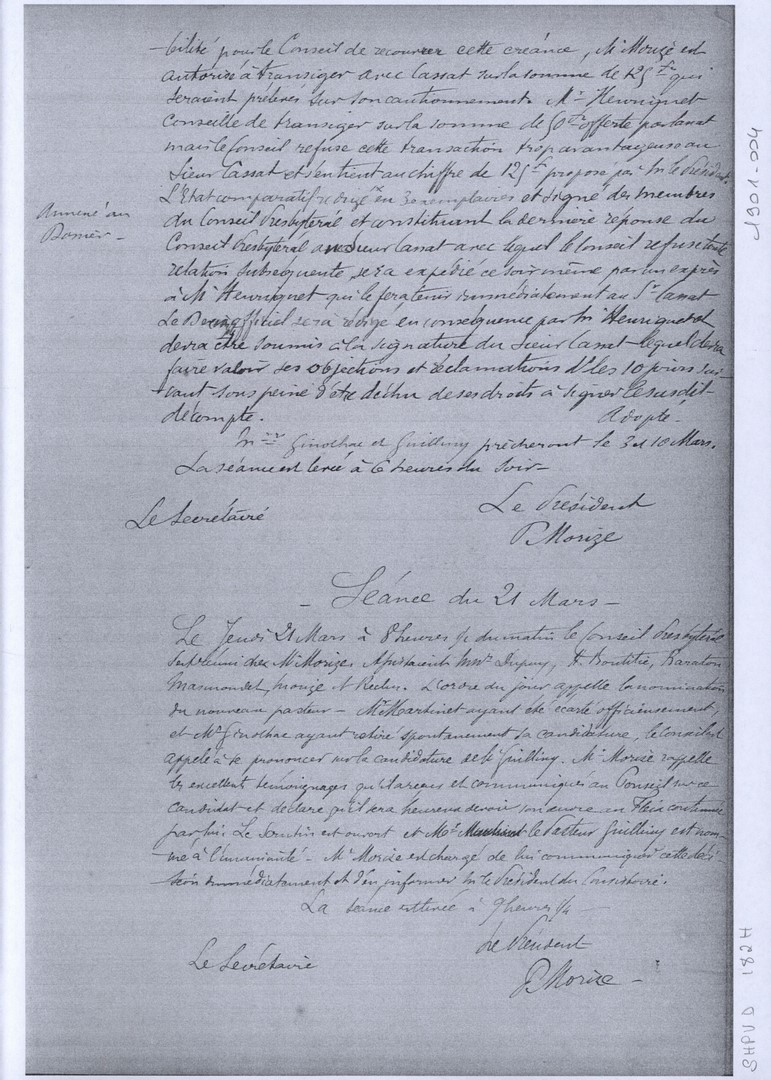 -bilité pour le Conseil de recouvrer cette créance, Mr Morize est
autorisé à transiger avec Cassat sur la somme de 125 f qui
seraient prélevés sur son cautionnement. Mr Henriquet
conseille de transiger sur la somme de 50 f offerte par Cassat
mais le Conseil refuse cette transaction trop avantageuse au
Sieur Cassat et s'en tient au chiffre de 125 f proposé par Mr le Président.
L'Etat comparatif rédigé en 3 exemplaires et signé des membres
Annexé au
Dossier -
du Conseil Presbytéral et constituant la dernière réponse du
Conseil Presbytéral au Sieur Cassat avec lequel le Conseil refuse toute
relation subséquente, sera expédié ce soir même par un exprès
à Mr Henriquet qui le fera tenir immédiatement au Sr Cassat
Le officiel sera rédigé en conséquence par Mr Henriquet et
devra être soumis à la signature du Sieur Cassat lequel devra
faire valoir ses objections et réclamations les 10 jours sui-
-vant sous peine d'être déchu de ses droits à signer le susdit
décompte. Adopté -
Mrs Ginolhac et Guilliny prêcheront le 3 et 10 Mars.
La séance est levée à 6 heures du soir -
Le Secrétaire
Le Président
P. Morize
- Séance du 21 Mars -
Le Jeudi 21 Mars à 8 heures 1/2 du matin le Conseil Presbytéral
s'est réuni chez Mr Morize. Assistaient Mrs Dupuy, Baraton
Morize et Reclus. L'ordre du jour appelle la nomination
du nouveau pasteur - Mr Martinet ayant été écarté officieusement,
et Mr Ginolhac ayant retiré spontanément sa candidature, le Conseil est
appelé à se prononcer sur la candidature de Mr Guilliny. Mr Morize rappelle
les excellents témoignages qu'il a reçus et communiqués au Conseil sur ce
candidat et déclare qu'il sera heureux de voir son œuvre au Fleix continuée
par lui. Le scrutin est ouvert et Mr le Pasteur Guilliny est nom-
-mé à l'unanimité - Mr Morize est chargé de lui communiquer cette déci-
-sion immédiatement et d'en informer Mr le Président du Consistoire.
La séance est levée à 9 heures 1/4 -
Le Président
Le Secrétaire
P. Morize -
1901-004
SHPVD 182H